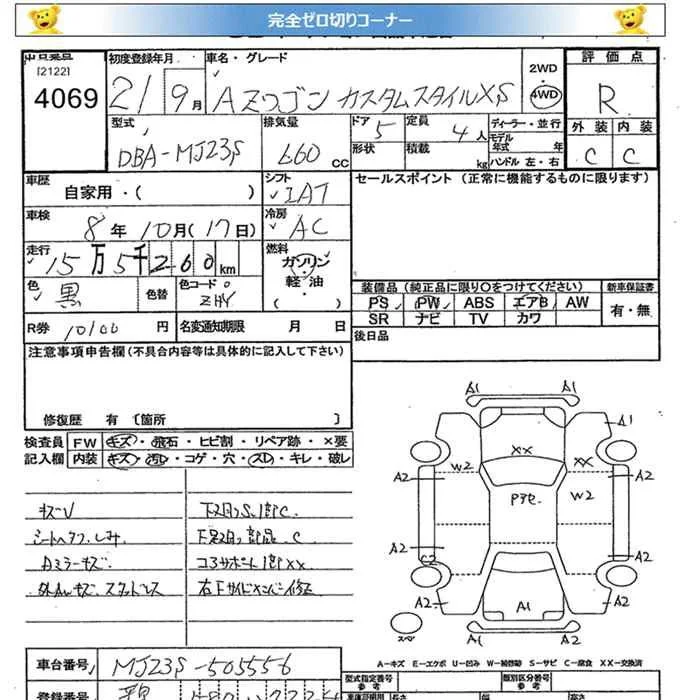 完全ゼロ切りコーナー
[2122]
4069
初度登録年月
21 9月
車名・グレード
AZワゴン カスタムスタイルXS
2WD
4WD
評価点
R
外装 内装
C C
型式
DBA-MJ23S
排気量
660 CC
ドア 5
定員 4人
形状
積載 kg
ディーラー・並行
モデル年式 年
ハンドル 左・右
車歴
自家用・( )
シフト
IAT
セールスポイント(正常に機能するものに限ります)
車検
8年10月(17日)
冷房
AC
走行
15万5千260km
燃料
ガソリン・
軽油・
( )
色
黒
色替
色コード
ZHY
装備品(純正品に限り○をつけてください)
新車保証書
PS PW ABS エアB AW
SR ナビ TV カワ
有・無
R券 10100円
名変通知期限 月 日
後日品
注意事項申告欄(不具合内容等は具体的に記入して下さい)
修復歴 有〔箇所 〕
検査員記入欄
FW キズ・飛石・ヒビ割・リペア跡・×要
内装 キズ・汚レ・コゲ・穴・スレ・キレ・破レ
キズV
Aミラーキズ
コアサポート1部XX
A1 A1
A1
XX
W2 XX
A2 A2
Pアセ W2
A2 A2
C2
A2 A1 A2
A1 A2
スペ
A-キズ E-エクボ U-凹み W-補修跡 S-サビ C-腐食 XX-交換済
車台番号 MJ23S-505556
登録番号
型式指定番号
参考
類別区分番号
参考